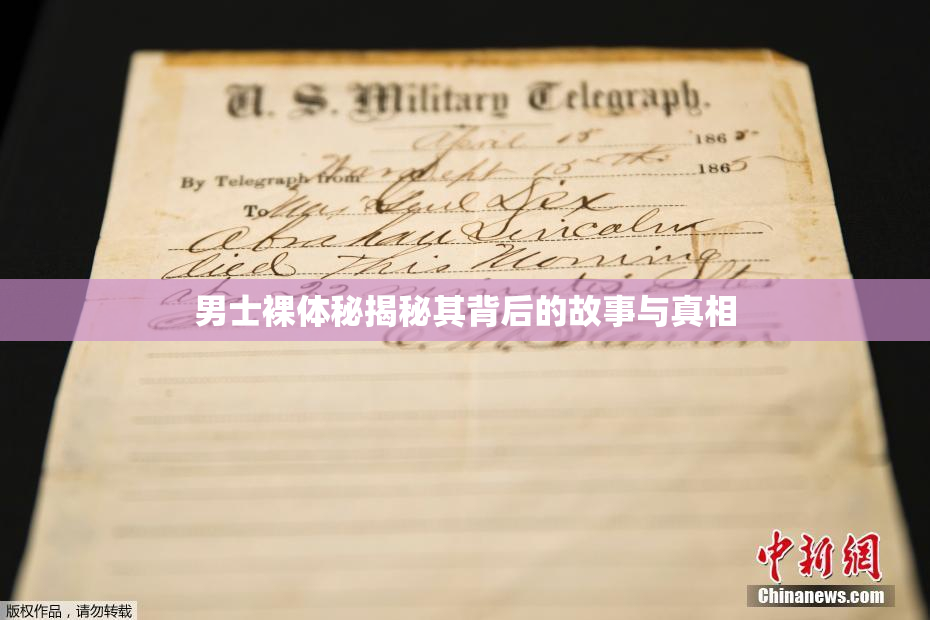 U. S. Military Telegraph.
April 15 1865
By Telegraph from War Dept 15th 1865
To Maj Genl Dix
Abraham Lincoln
died This Morning
at 22 minutes after
男士裸体秘揭秘其背后的故事与真相
E. M. Stanton
中新網
Chinanews.com
版权作品,请勿转载